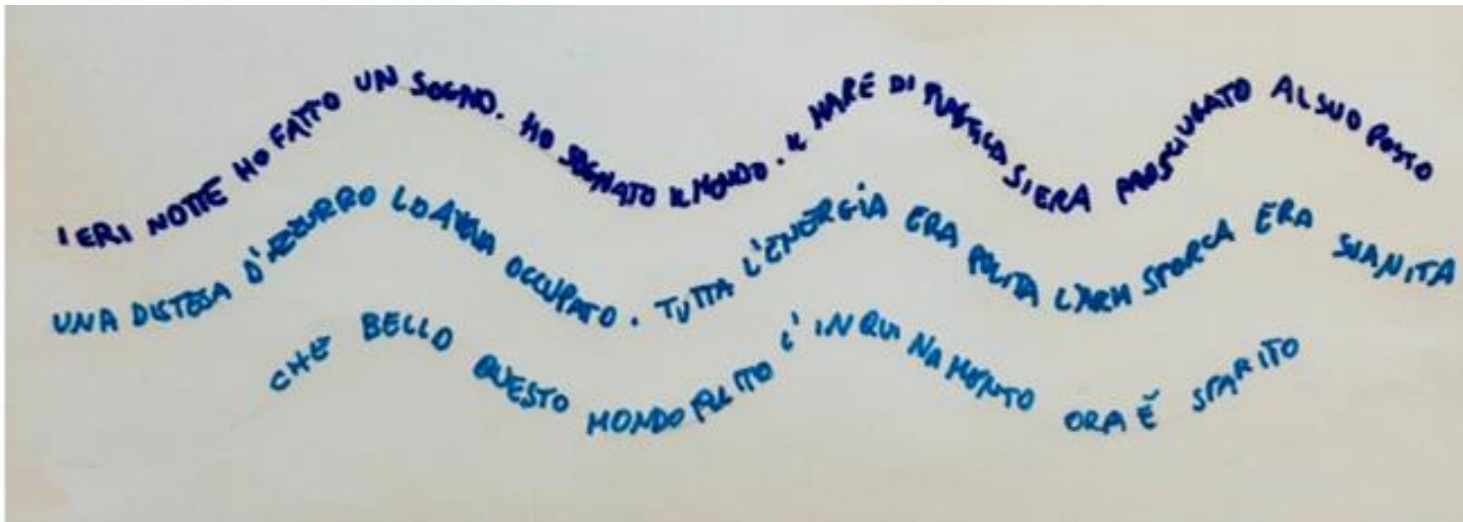 IERI NOTTE HO FATTO UN SOGNO. HO SOGNATO IL MONDO. IL MARE DI PLASTICA SI ERA PROSCIUGATO AL SUO POSTO
UNA DISTESA D'AZZURRO LO AVEVA OCCUPATO. TUTTA L'ENERGIA ERA PULITA L'ARIA SPORCA ERA SVANITA
CHE BELLO QUESTO MONDO PULITO L'INQUINAMENTO ORA È SPARITO